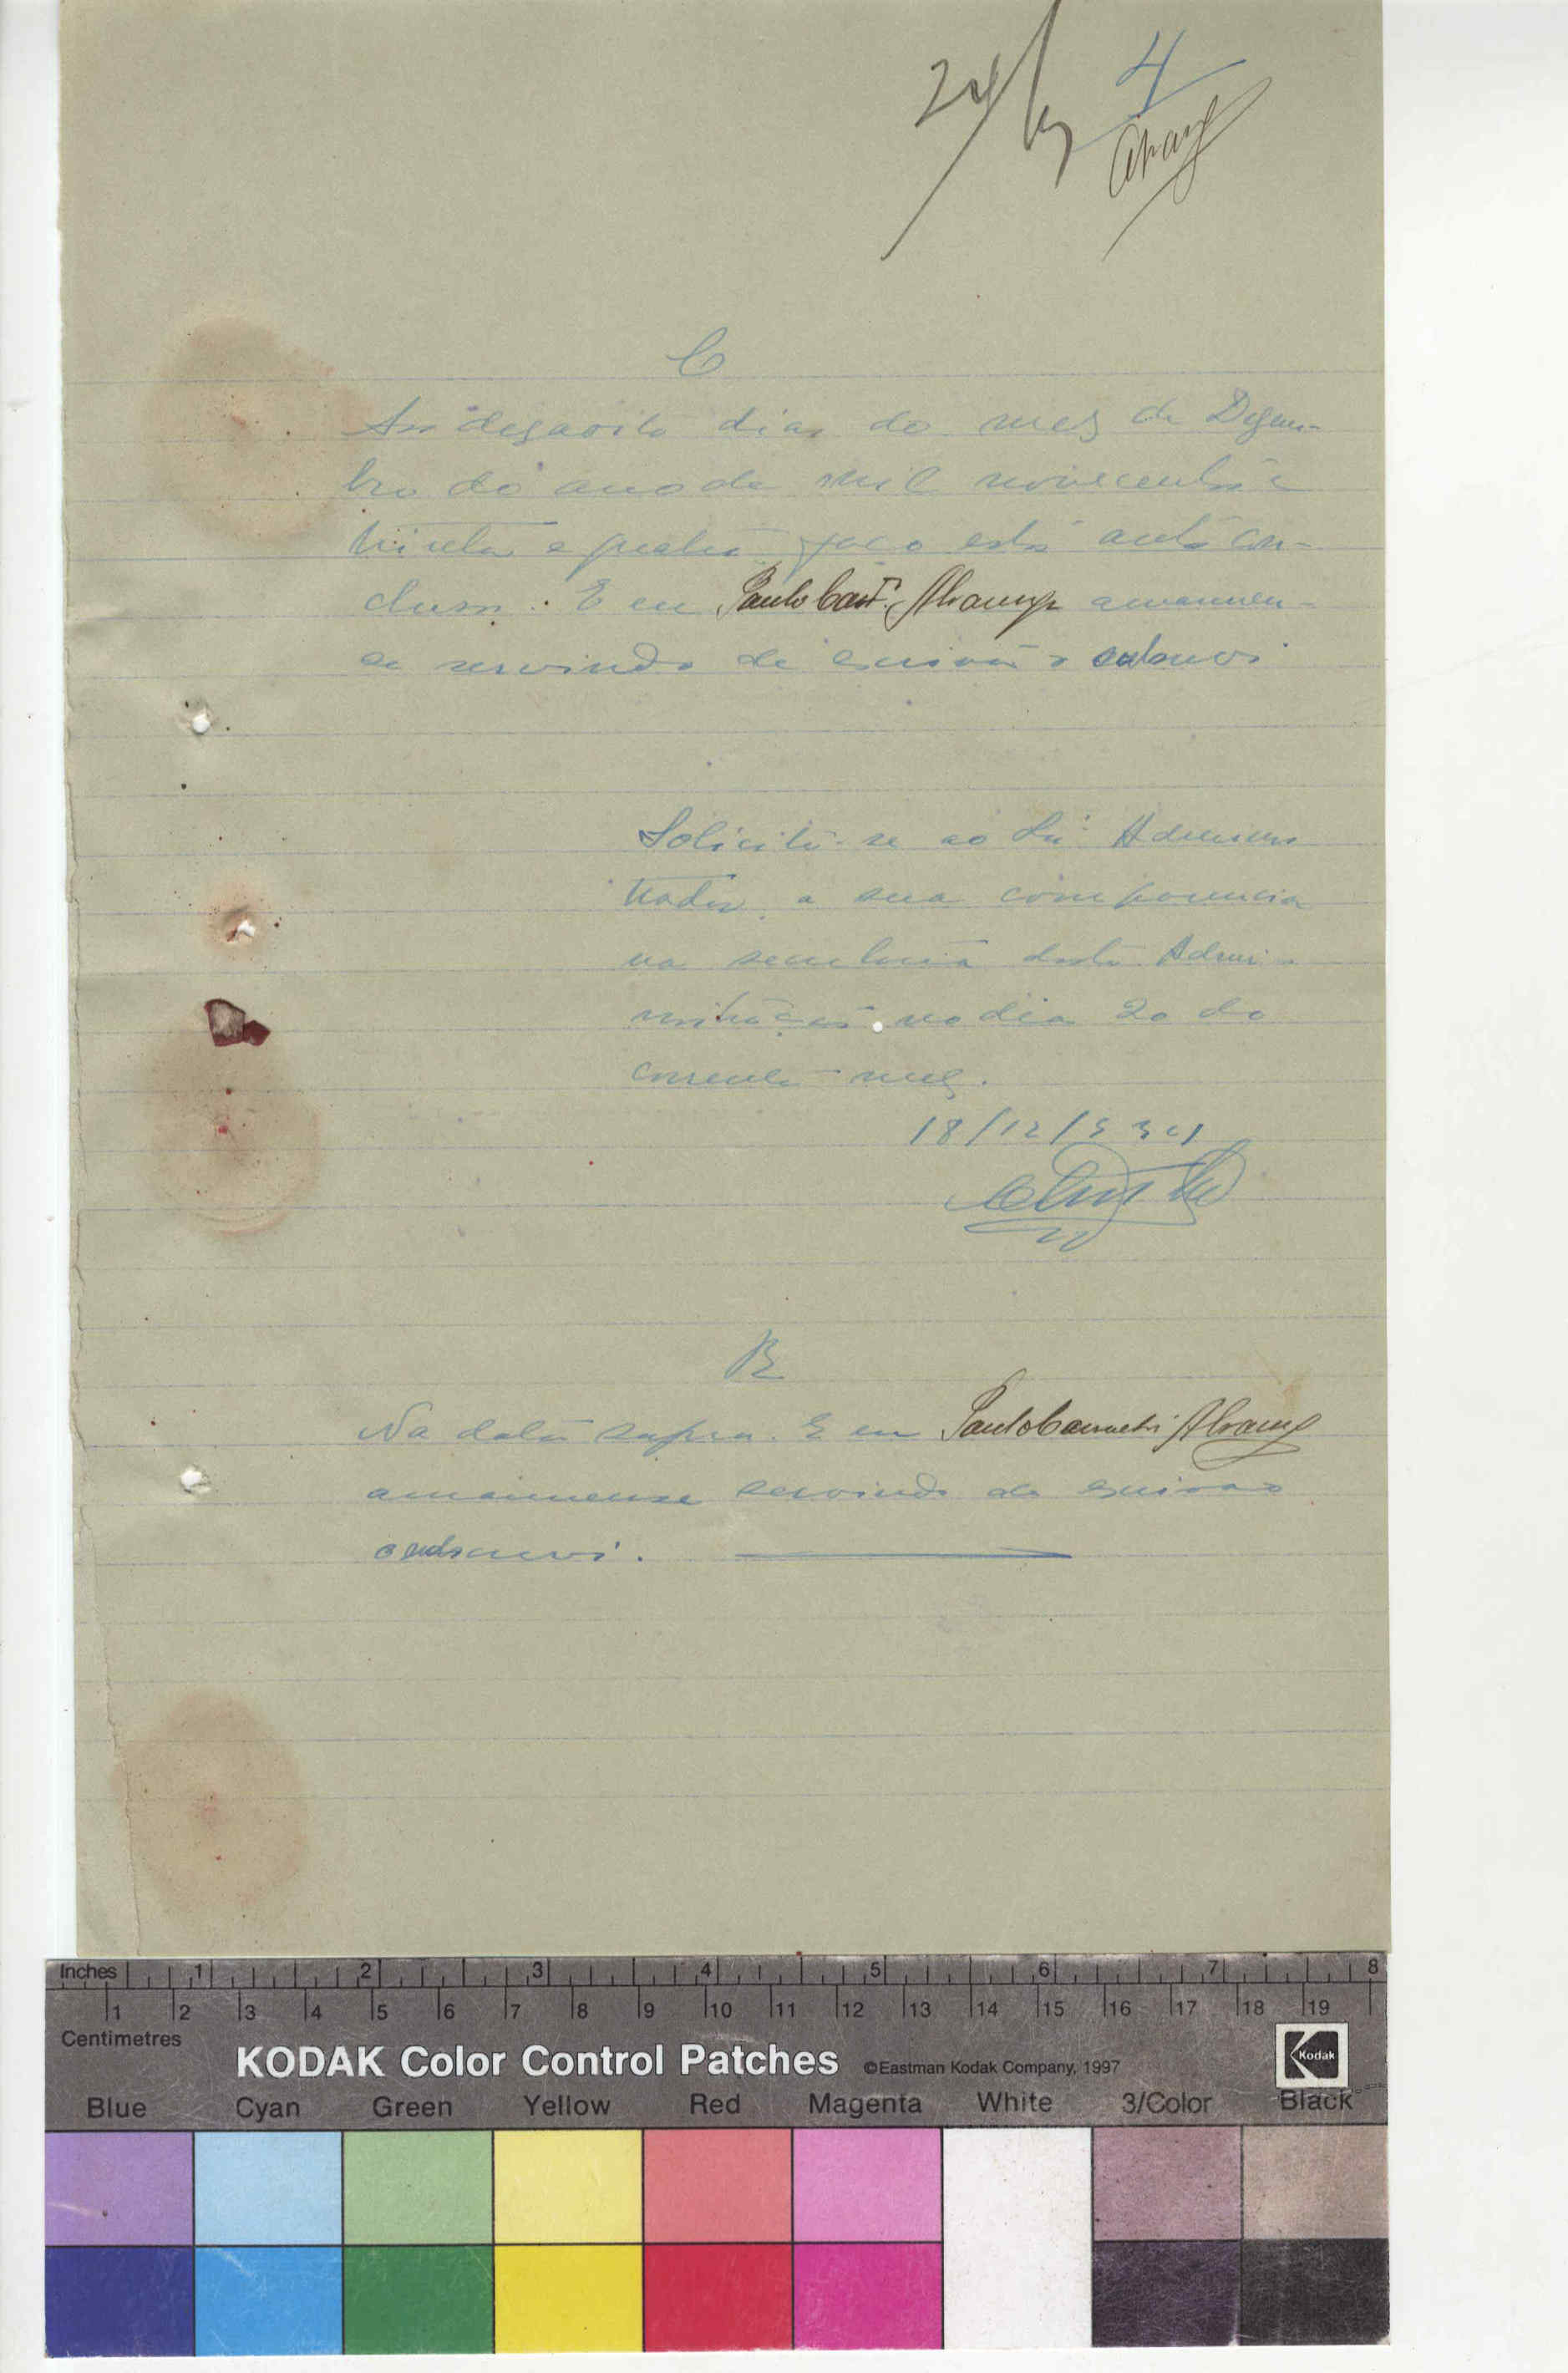 24
4
C
Aos desaoito dias do mes de Dezem-
bro do ano de mil novecentos e
trinta e quatro faço estes autos con-
clusos. E eu Paulo amanuen-
se servindo de escrivão o subscrevi
Solicita-se ao Snr. Adminis
trador, a sua comparencia
na secretaria desta Admi-
nistração no dia 20 do
corrente mez.
18/12/934
R
Na data supra. E eu Paulo
amanuense servindo de escrivão
o subscrevi.
Inches 1 2 3 4 5 6 7 8
1 2 3 4 5 6 7 8 9 10 11 12 13 14 15 16 17 18 19
Centimetres
KODAK Color Control Patches ©Eastman Kodak Company, 1997 Kodak
Blue Cyan Green Yellow Red Magenta White 3/Color Black